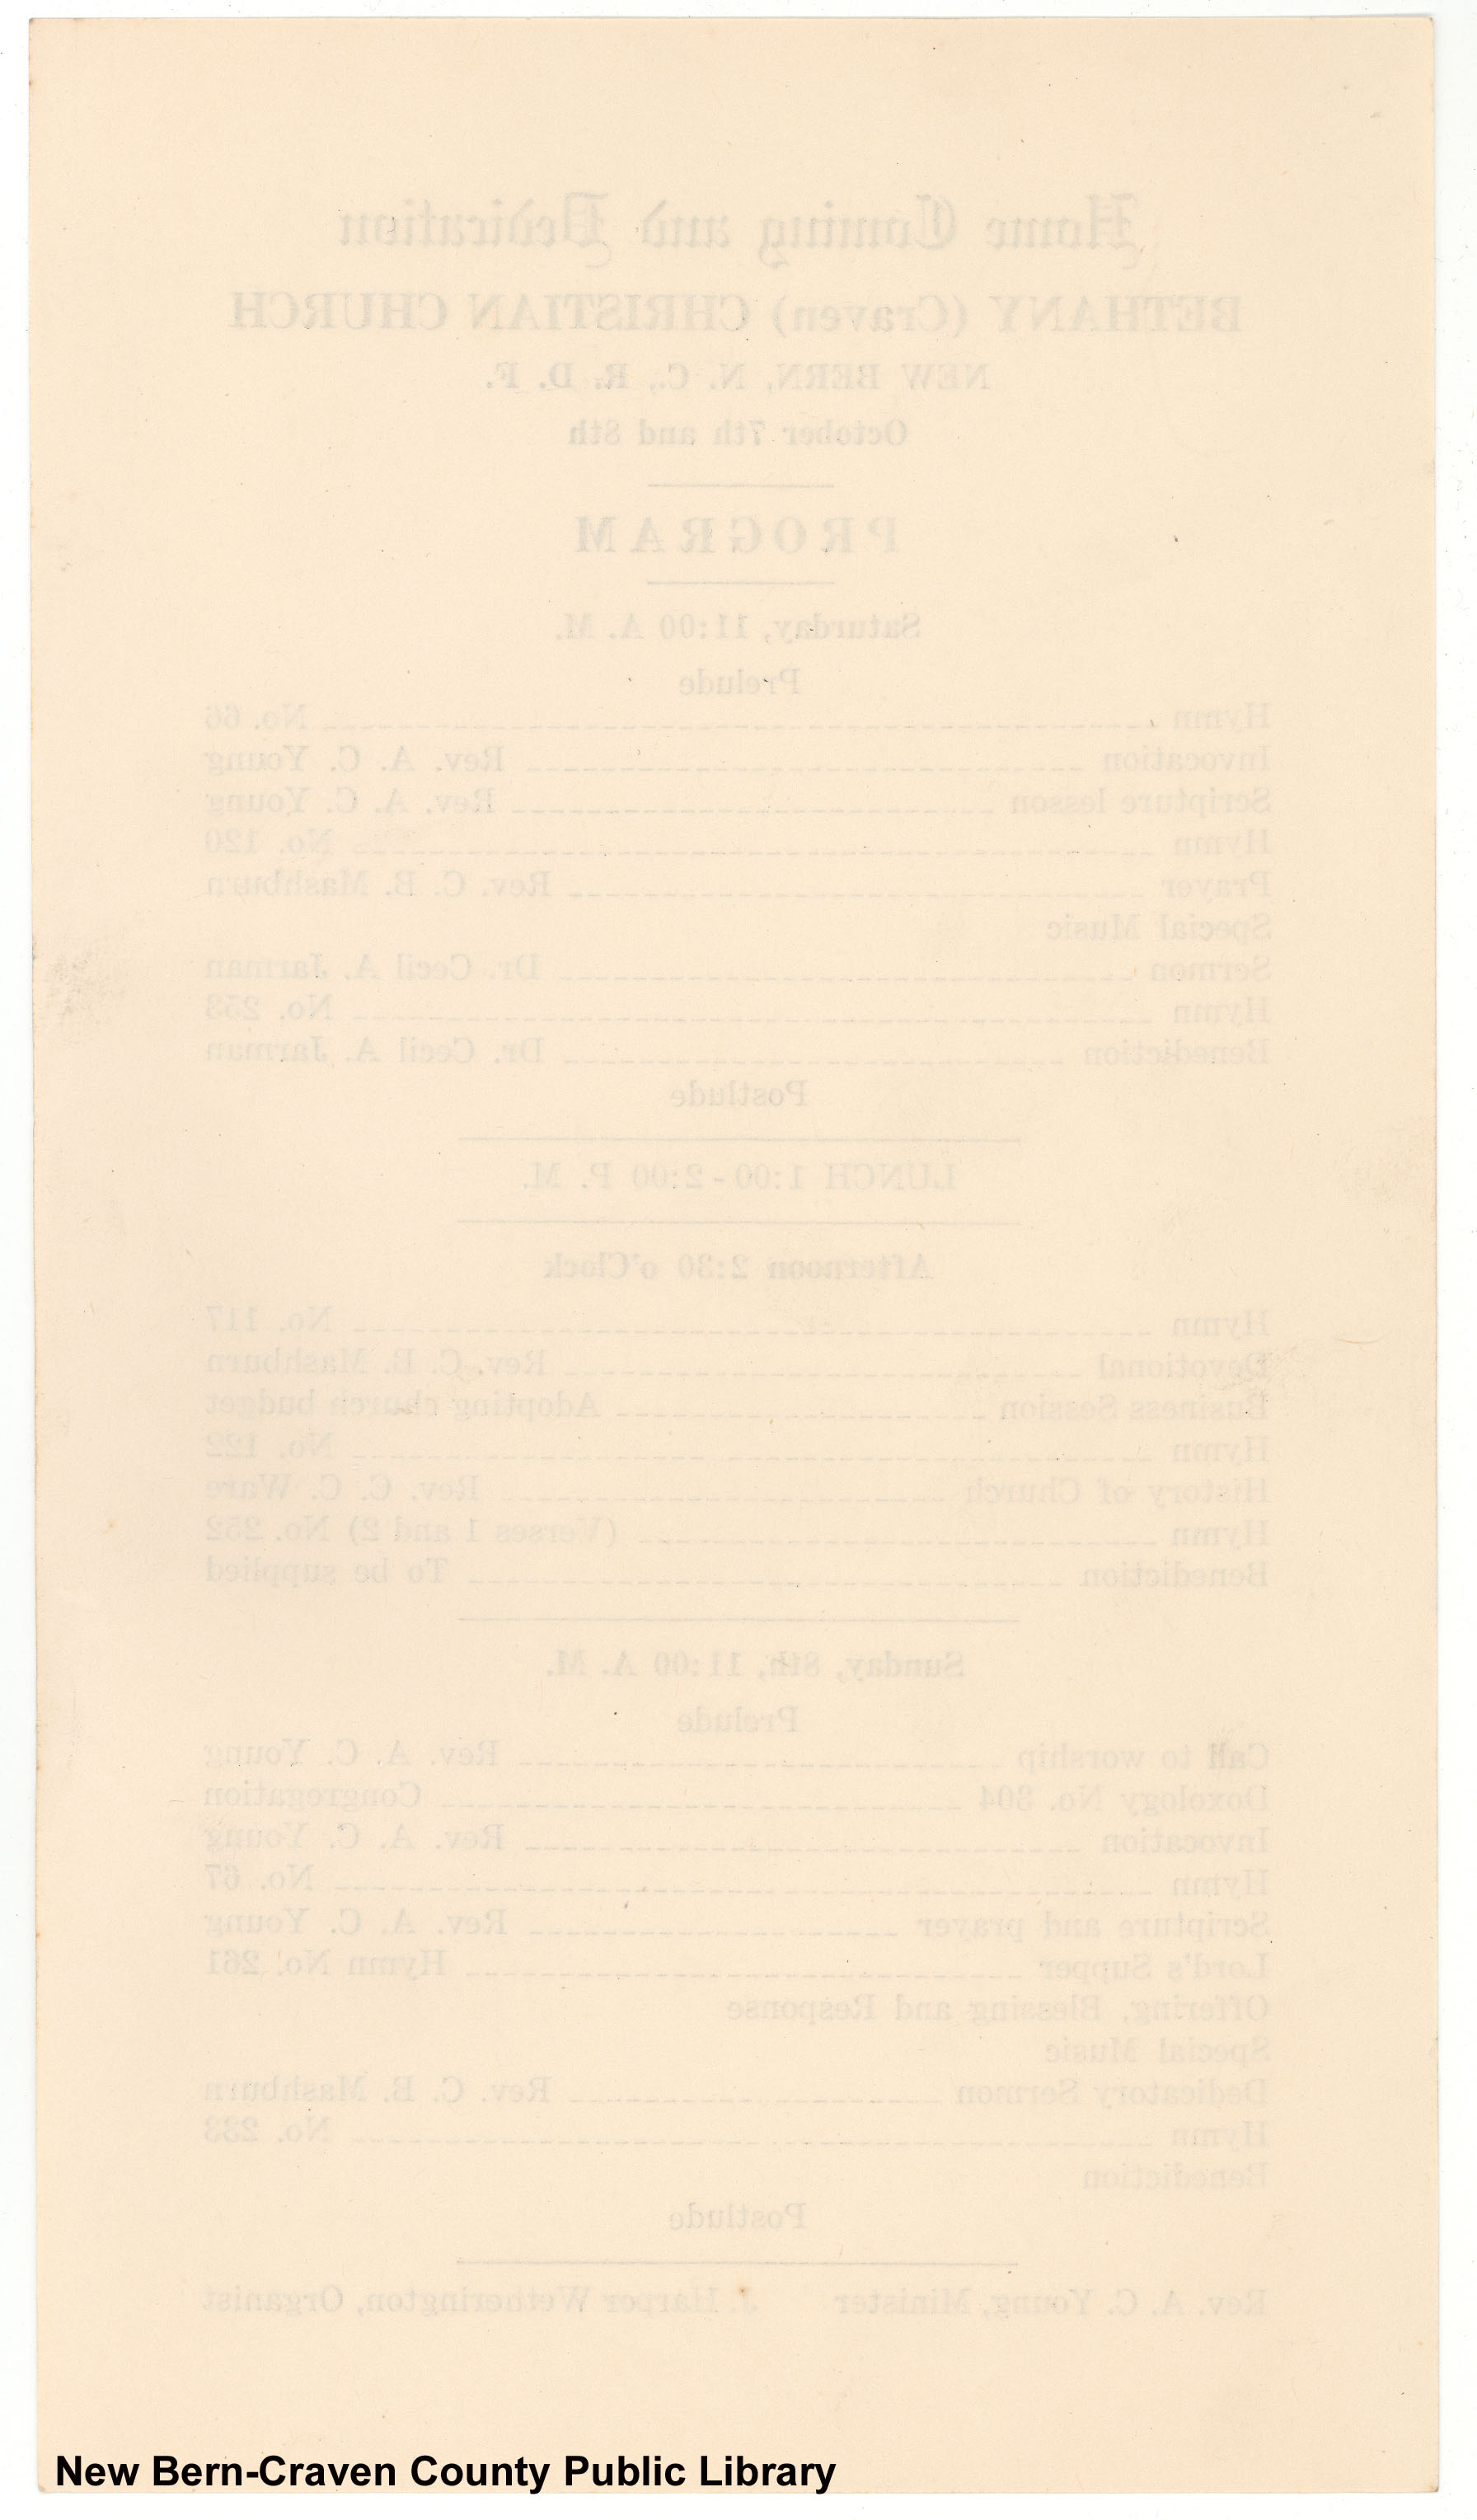 Home Coming and Dedication
BETHANY (Craven) CHRISTIAN CHURCH
NEW BERN, N. C., R. D. F.
October 7th and 8th
PROGRAM
Saturday, 11:00 A. M.
Prelude
Hymn No. 66
Invocation Rev. A. C. Young
Scripture lesson Rev. A. C. Young
Hymn No. 120
Prayer Rev. C. B. Mashburn
Special Music
Sermon Dr. Cecil A. Jarman
Hymn No. 253
Benediction Dr. Cecil A. Jarman
Postlude
LUNCH 1:00-2:00 P. M.
Afternoon 2:30 o'Clock
Hymn No. 117
Devotional Rev. C. B. Mashburn
Business Session Adopting church budget
Hymn No. 122
History of Church Rev. C. C. Ware
Hymn (Verses 1 and 2) No. 252
Benediction To be supplied
Sunday, 8th, 11:00 A. M.
Prelude
Call to worship Rev. A. C. Young
Doxology No. 304 Congregation
Invocation Rev. A. C. Young
Hymn No. 67
Scripture and prayer Rev. A. C. Young
Lord's Supper Hymn No. 261
Offering, Blessing and Response
Special Music
Dedicatory Sermon Rev. C. B. Mashburn
Hymn No. 233
Benediction
Postlude
Rev. A. C. Young, Minister J. Harper Wetherington, Organist
New Bern-Craven County Public Library